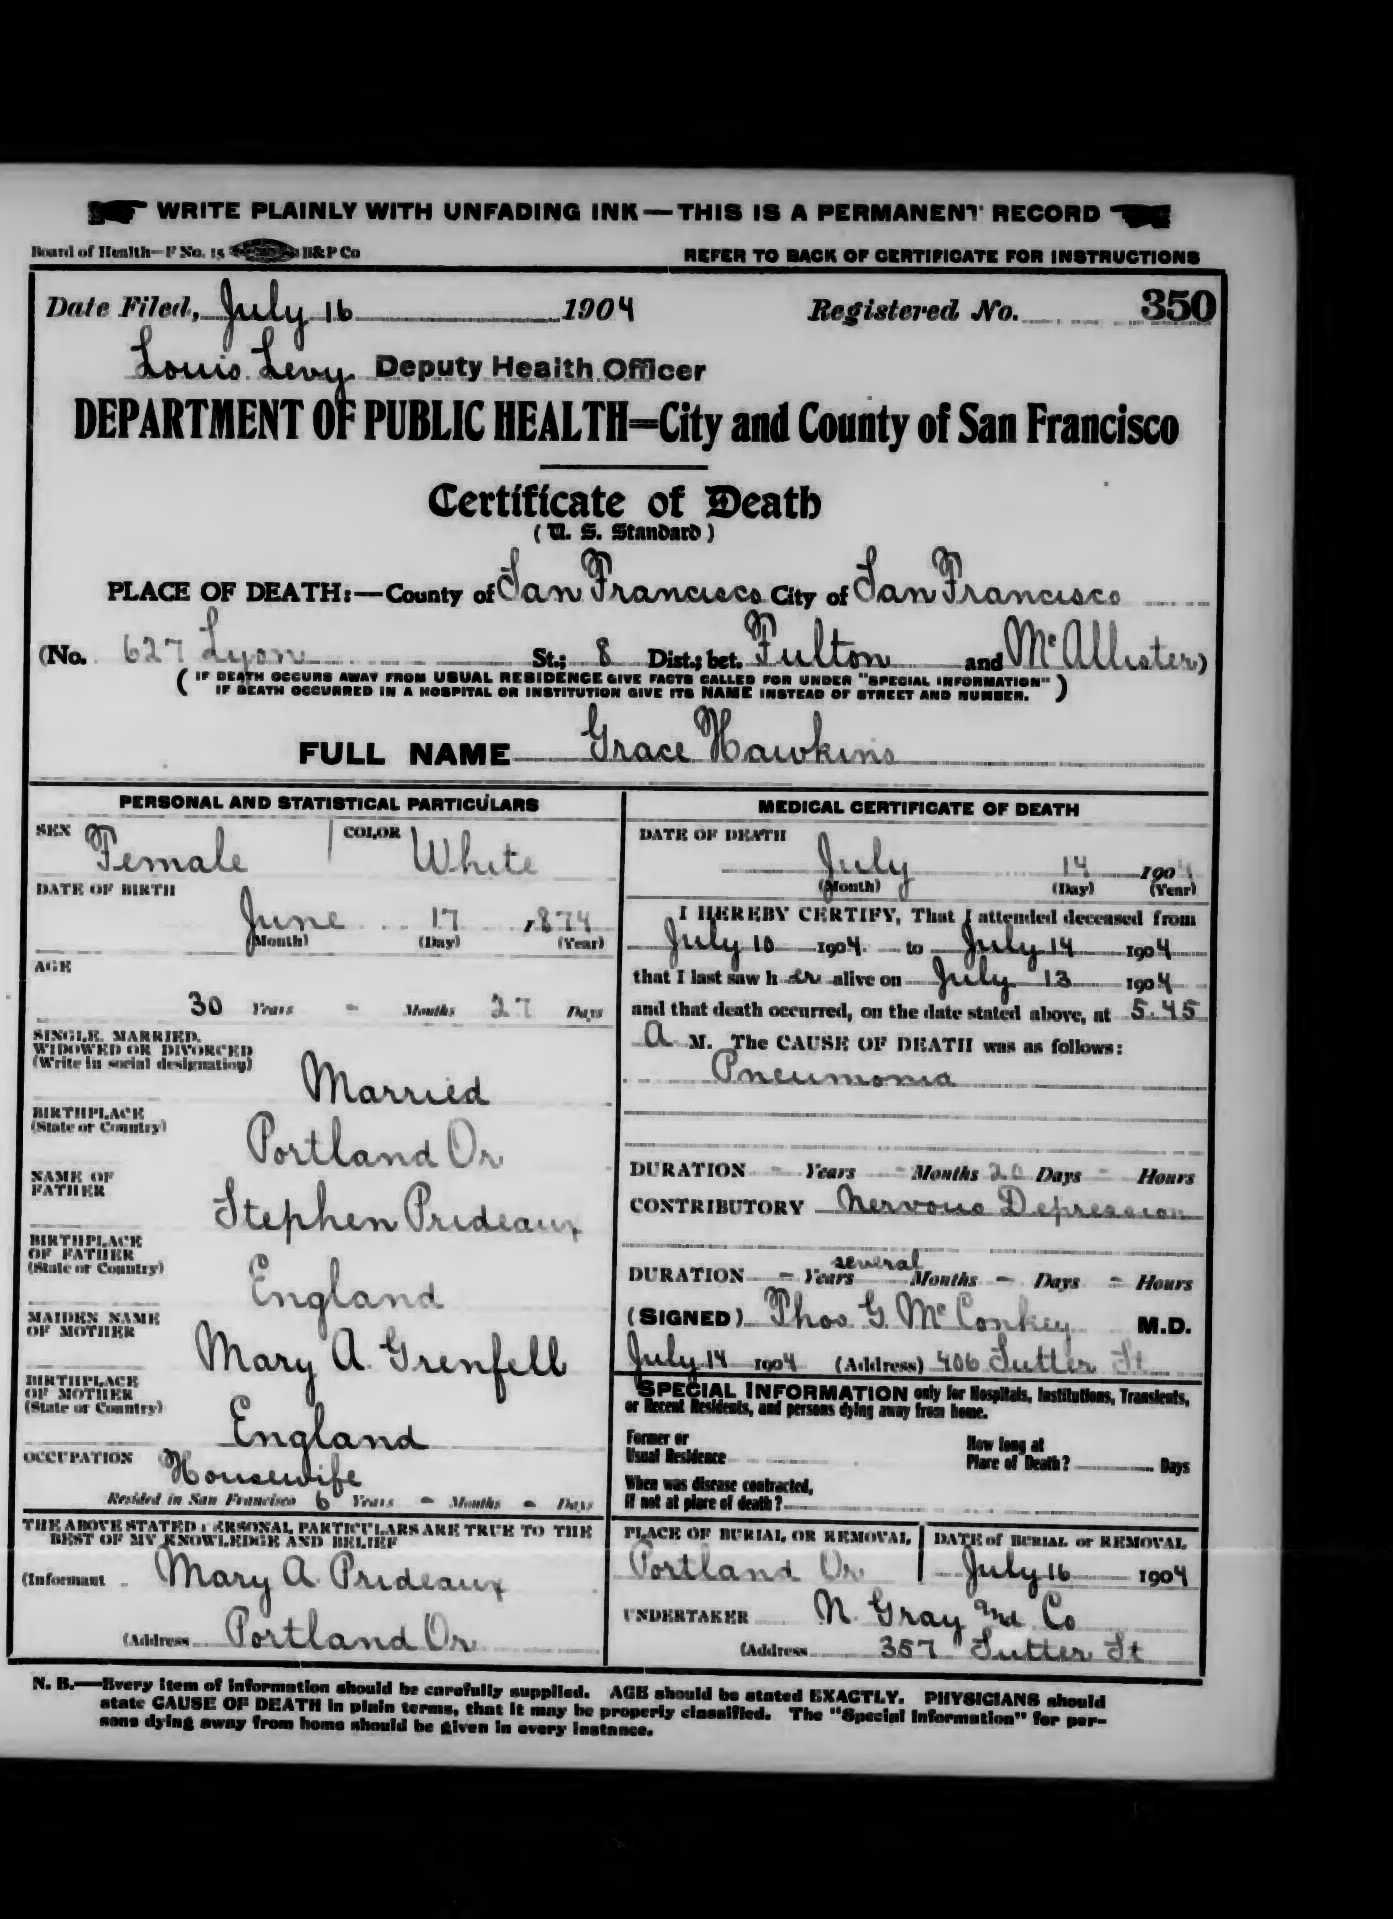 WRITE PLAINLY WITH UNFADING INK—THIS IS A PERMANENT RECORD
Board of Health—F No. 15 H&P Co REFER TO BACK OF CERTIFICATE FOR INSTRUCTIONS
Date Filed, July 16 1904 Registered No. 350
Louis Levy Deputy Health Officer
DEPARTMENT OF PUBLIC HEALTH=City and County of San Francisco
Certificate of Death
(U. S. Standard)
PLACE OF DEATH:—County of San Francisco City of San Francisco
(No. 627 Lyon St.; 8 Dist.; bet. Fulton and McAllister)
( IF DEATH OCCURS AWAY FROM USUAL RESIDENCE GIVE FACTS CALLED FOR UNDER "SPECIAL INFORMATION"
IF DEATH OCCURRED IN A HOSPITAL OR INSTITUTION GIVE ITS NAME INSTEAD OF STREET AND NUMBER. )
FULL NAME Grace Hawkins
PERSONAL AND STATISTICAL PARTICULARS
SEX Female COLOR White
DATE OF BIRTH
June 17 ,874
(Month) (Day) (Year)
AGE
30 Years - Months 27 Days
SINGLE, MARRIED,
WIDOWED OR DIVORCED
(Write in social designation)
Married
BIRTHPLACE
(State or Country)
Portland Or
NAME OF
FATHER
Stephen Prideaux
BIRTHPLACE
OF FATHER
(State or Country)
England
MAIDEN NAME
OF MOTHER
Mary A. Grenfell
BIRTHPLACE
OF MOTHER
(State or Country)
England
OCCUPATION Housewife
Resided in San Francisco 6 Years - Months - Days
THE ABOVE STATED PERSONAL PARTICULARS ARE TRUE TO THE
BEST OF MY KNOWLEDGE AND BELIEF
(Informant Mary A. Prideaux
(Address Portland Or
MEDICAL CERTIFICATE OF DEATH
DATE OF DEATH
July 14 1904
(Month) (Day) (Year)
I HEREBY CERTIFY, That I attended deceased from
July 10 1904 to July 14 1904
that I last saw h er alive on July 13 1904
and that death occurred, on the date stated above, at 5.45
A M. The CAUSE OF DEATH was as follows:
Pneumonia
DURATION - Years - Months 20 Days - Hours
CONTRIBUTORY Nervous Depression
several
DURATION - Years Months - Days - Hours
(SIGNED) Thos. G. McConkey M.D.
July 14 1904 (Address) 406 Sutter St
SPECIAL INFORMATION only for Hospitals, Institutions, Transients,
or Recent Residents, and persons dying away from home.
Former or
Usual Residence
How long at
Place of Death? Days
When was disease contracted,
If not at place of death?
PLACE OF BURIAL OR REMOVAL DATE of BURIAL or REMOVAL
Portland Or July 16 1904
UNDERTAKER N. Gray and Co
(Address 357 Sutter St
N. B.—Every item of information should be carefully supplied. AGE should be stated EXACTLY. PHYSICIANS should
state CAUSE OF DEATH in plain terms, that it may be properly classified. The "Special Information" for per-
sons dying away from home should be given in every instance.